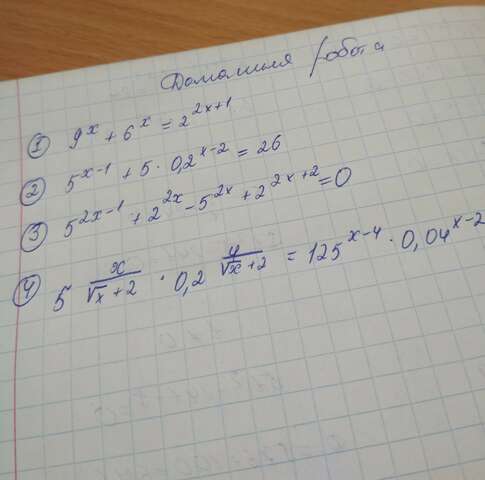 Домашня робота
① 9^x + 6^x = 2^{2x+1}
② 5^{x-1} + 5 · 0,2^{x-2} = 26
③ 5^{2x-1} + 2^{2x} - 5^{2x} + 2^{2x+2} = 0
④ 5^{\frac{x}{\sqrt{x}+2}} · 0,2^{\frac{4}{\sqrt{x}+2}} = 125^{x-4} · 0,04^{x-2}